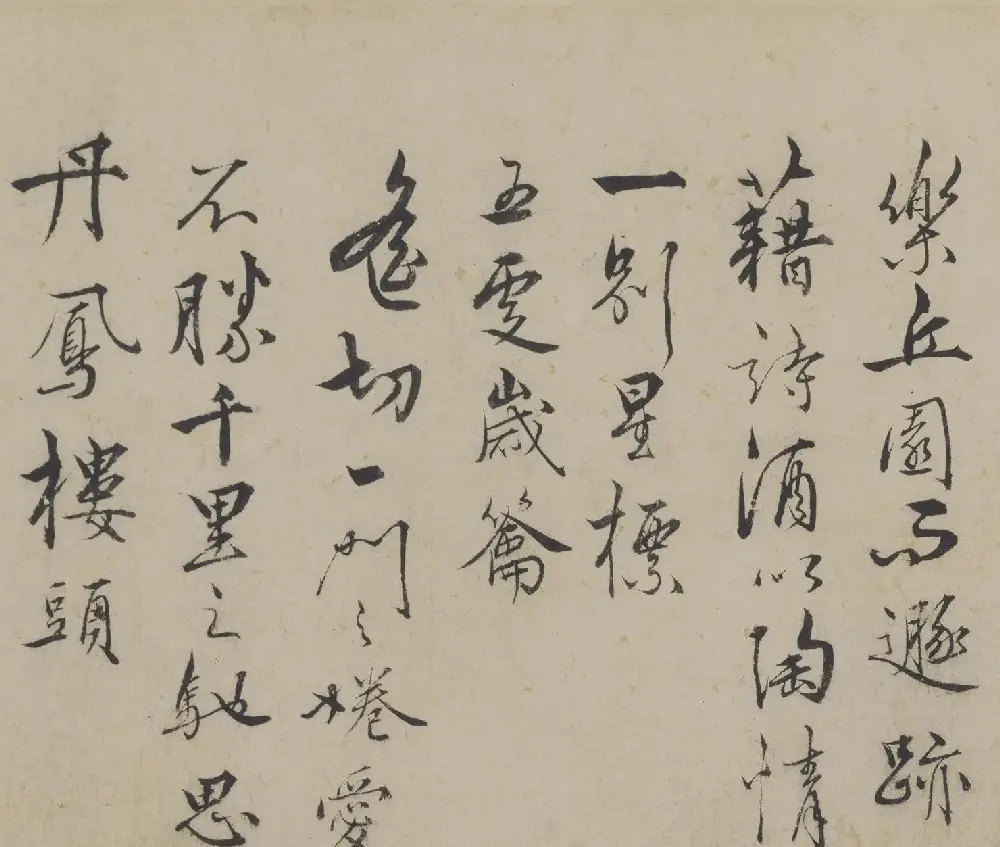 樂丘園而遯跡
藉詩酒以陶情
一別星標
五更歲籥
愈切一門之惓愛
不勝千里之馳思
丹鳳樓頭